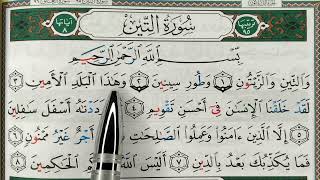 ترتيبها ٩٥ سُورَةُ التِّينِ آياتها ٨
بِسْمِ ٱللَّهِ ٱلرَّحْمَٰنِ ٱلرَّحِيمِ
وَٱلتِّينِ وَٱلزَّيْتُونِ ١ وَطُورِ سِينِينَ ٢ وَهَٰذَا ٱلْبَلَدِ ٱلْأَمِينِ ٣
لَقَدْ خَلَقْنَا ٱلْإِنسَٰنَ فِىٓ أَحْسَنِ تَقْوِيمٍ ٤ رَدَدْنَٰهُ أَسْفَلَ سَٰفِلِينَ
٥ إِلَّا ٱلَّذِينَ ءَامَنُوا۟ وَعَمِلُوا۟ ٱلصَّٰلِحَٰتِ أَجْرٌ غَيْرُ مَمْنُونٍ ٦
فَمَا يُكَذِّبُكَ بَعْدُ بِٱلدِّينِ ٧ أَلَيْسَ ٱللَّهُ ٱلْحَٰكِمِينَ ٨